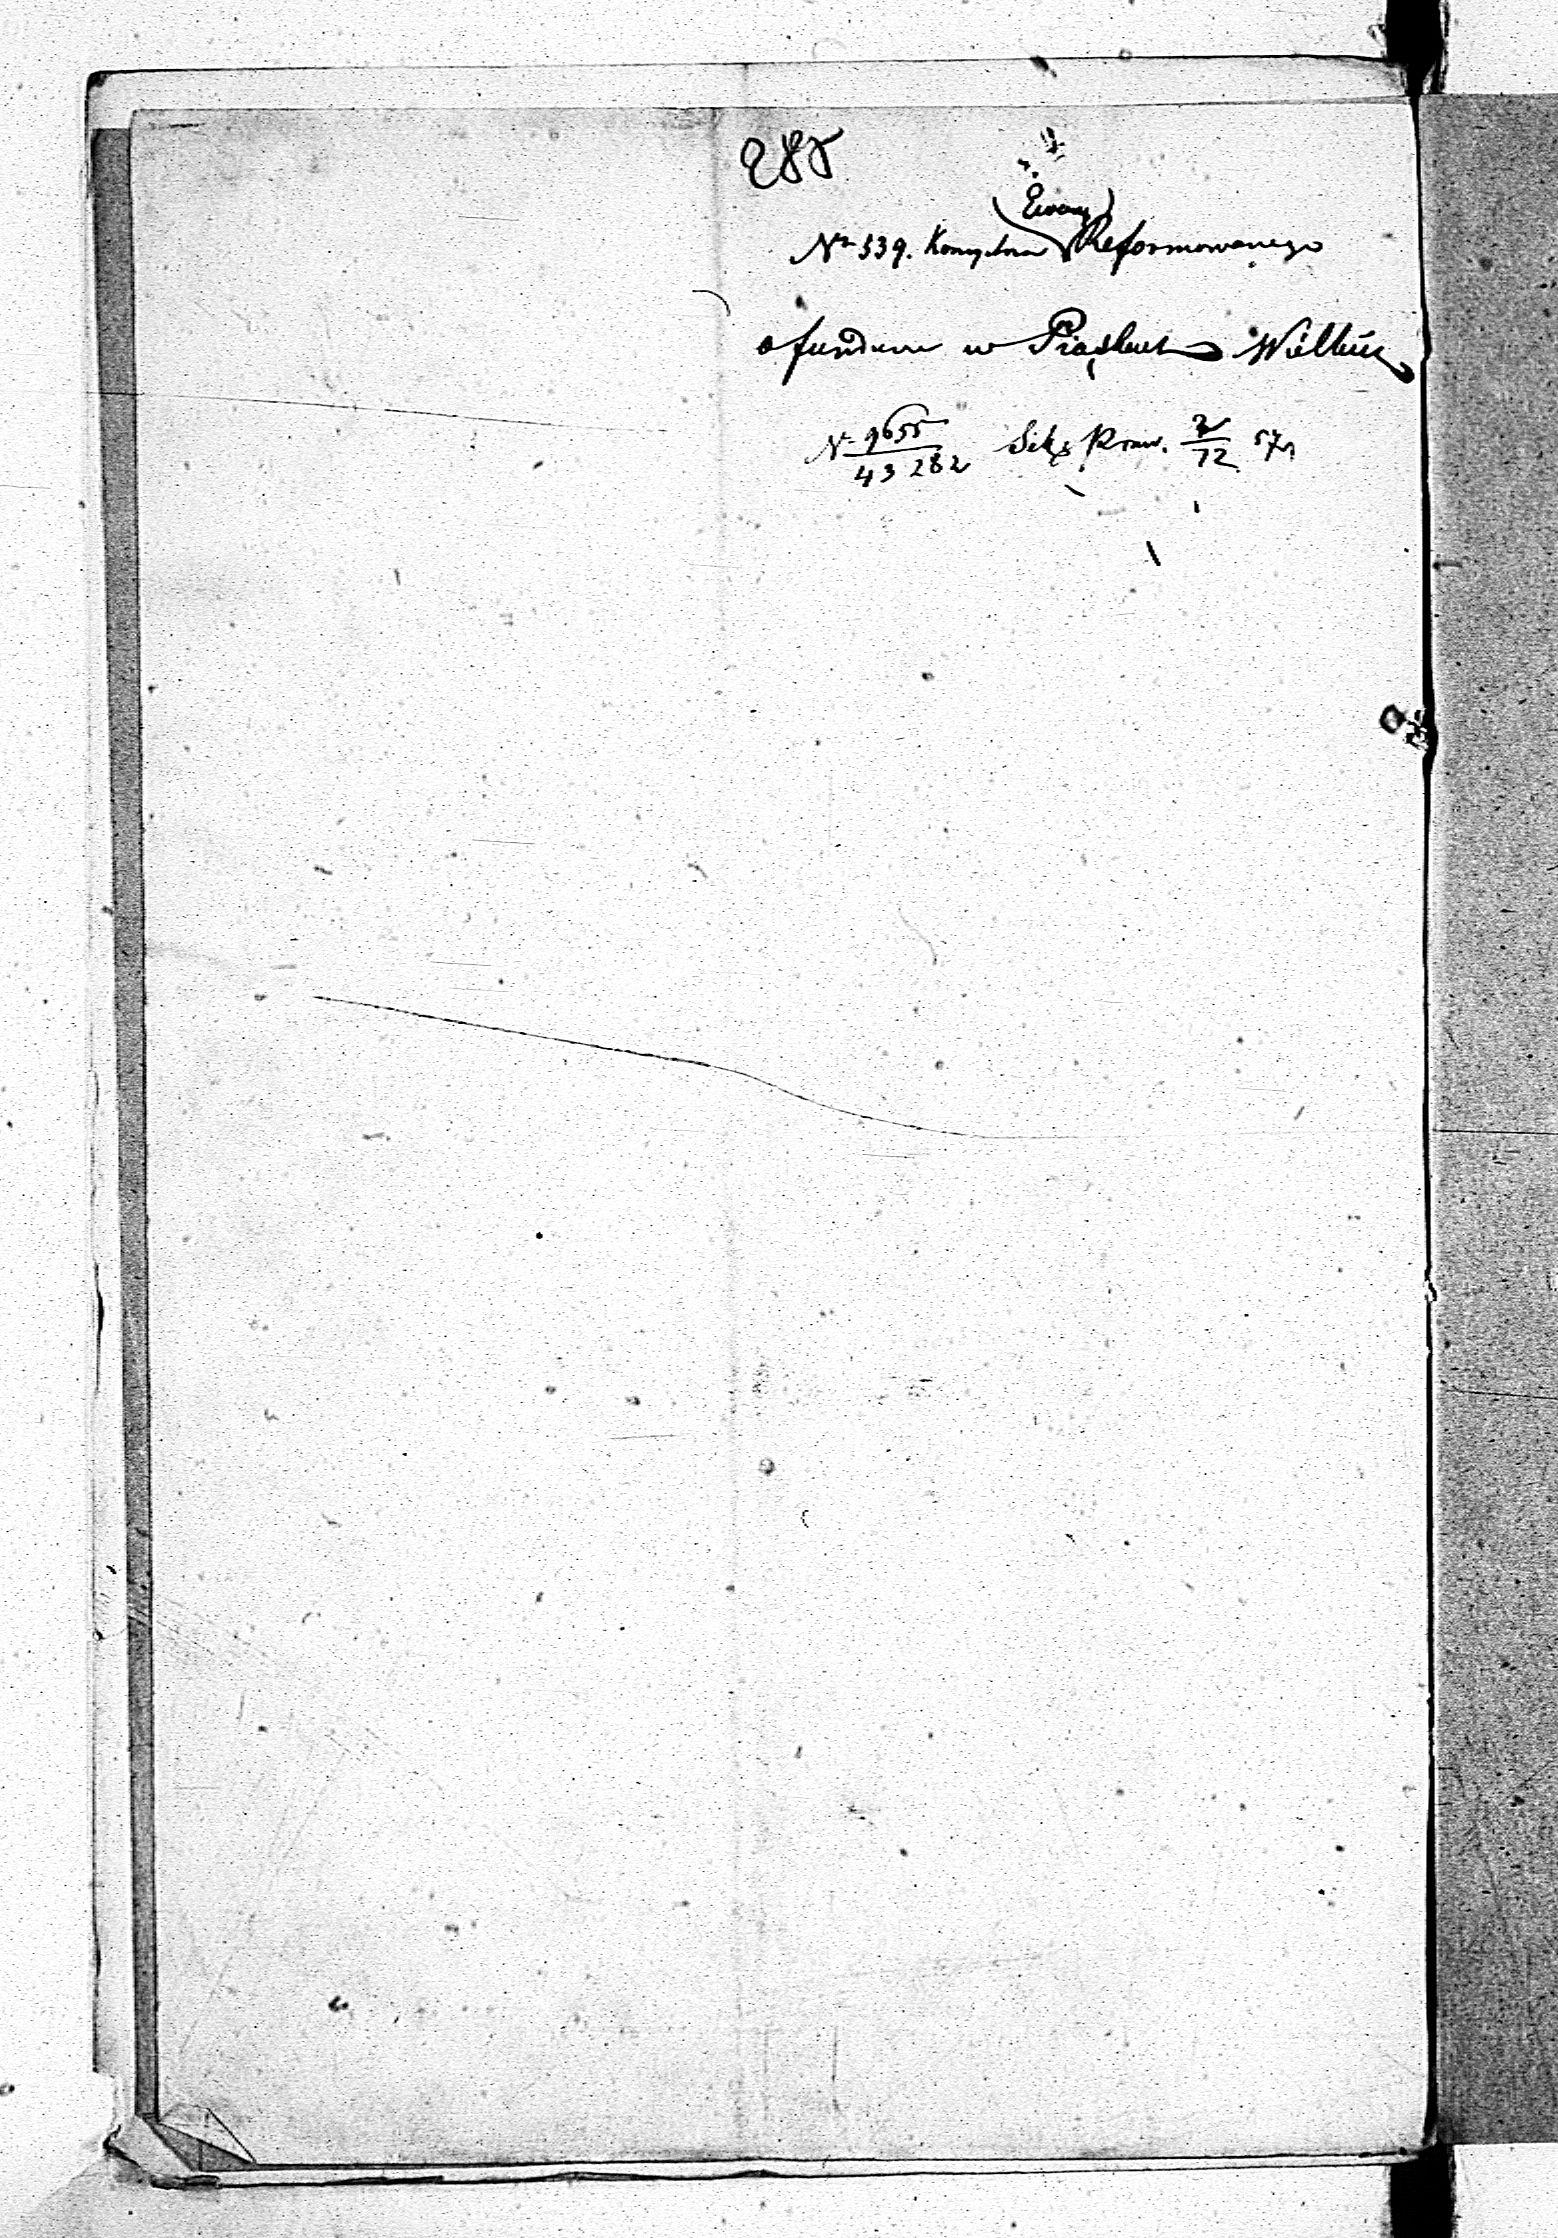 285
Ewang
No 539. Konsystorza Reformowanego
o fundum w Piaskach Wielkich
N 9655/43282 Sekr Praw. 2/12 57